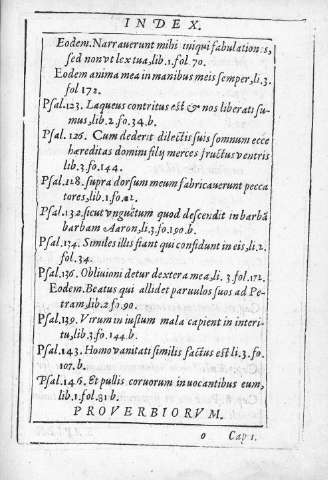 INDEX.
Eodem. Narrauerunt mihi iniqui fabulation:s,
sed non vt lex tua, lib.1.fol 70.
Eodem anima mea in manibus meis semper, li.3.
fol 172.
Psal.123. Laqueus contritus est & nos liberati su-
mus, lib.2.fo.34.b.
Psal.126. Cum dederit dilectis suis somnum ecce
hereditas domini filij merces fructus ventris
lib.3.fo.144.
Psal.128. supra dorsum meum fabricauerunt pecca
tores, lib.1.fo.
Psal.132. sicut vnguētum quod descendit in barbā
barbam Aaron, li.3.fo.190.b.
Psal.134. Similes illis fiant qui confidunt in eis, li.2.
fol.34.
Psal.136. Obliuioni detur dextera mea, li. 3.fol.172.
Eodem. Beatus qui allidet paruulos suos ad Pe-
tram, lib.2 fo.90.
Psal.139. Virum in iustum mala capient in interi-
tu, lib.3.fo.144.b.
Psal.143. Homo vanitati similis factus est li.3.fo.
107.b.
Psal.146. Et pullis coruorum inuocantibus eum,
lib.1.fol.81 b.
PROVERBIORVM.
o Cap 1.